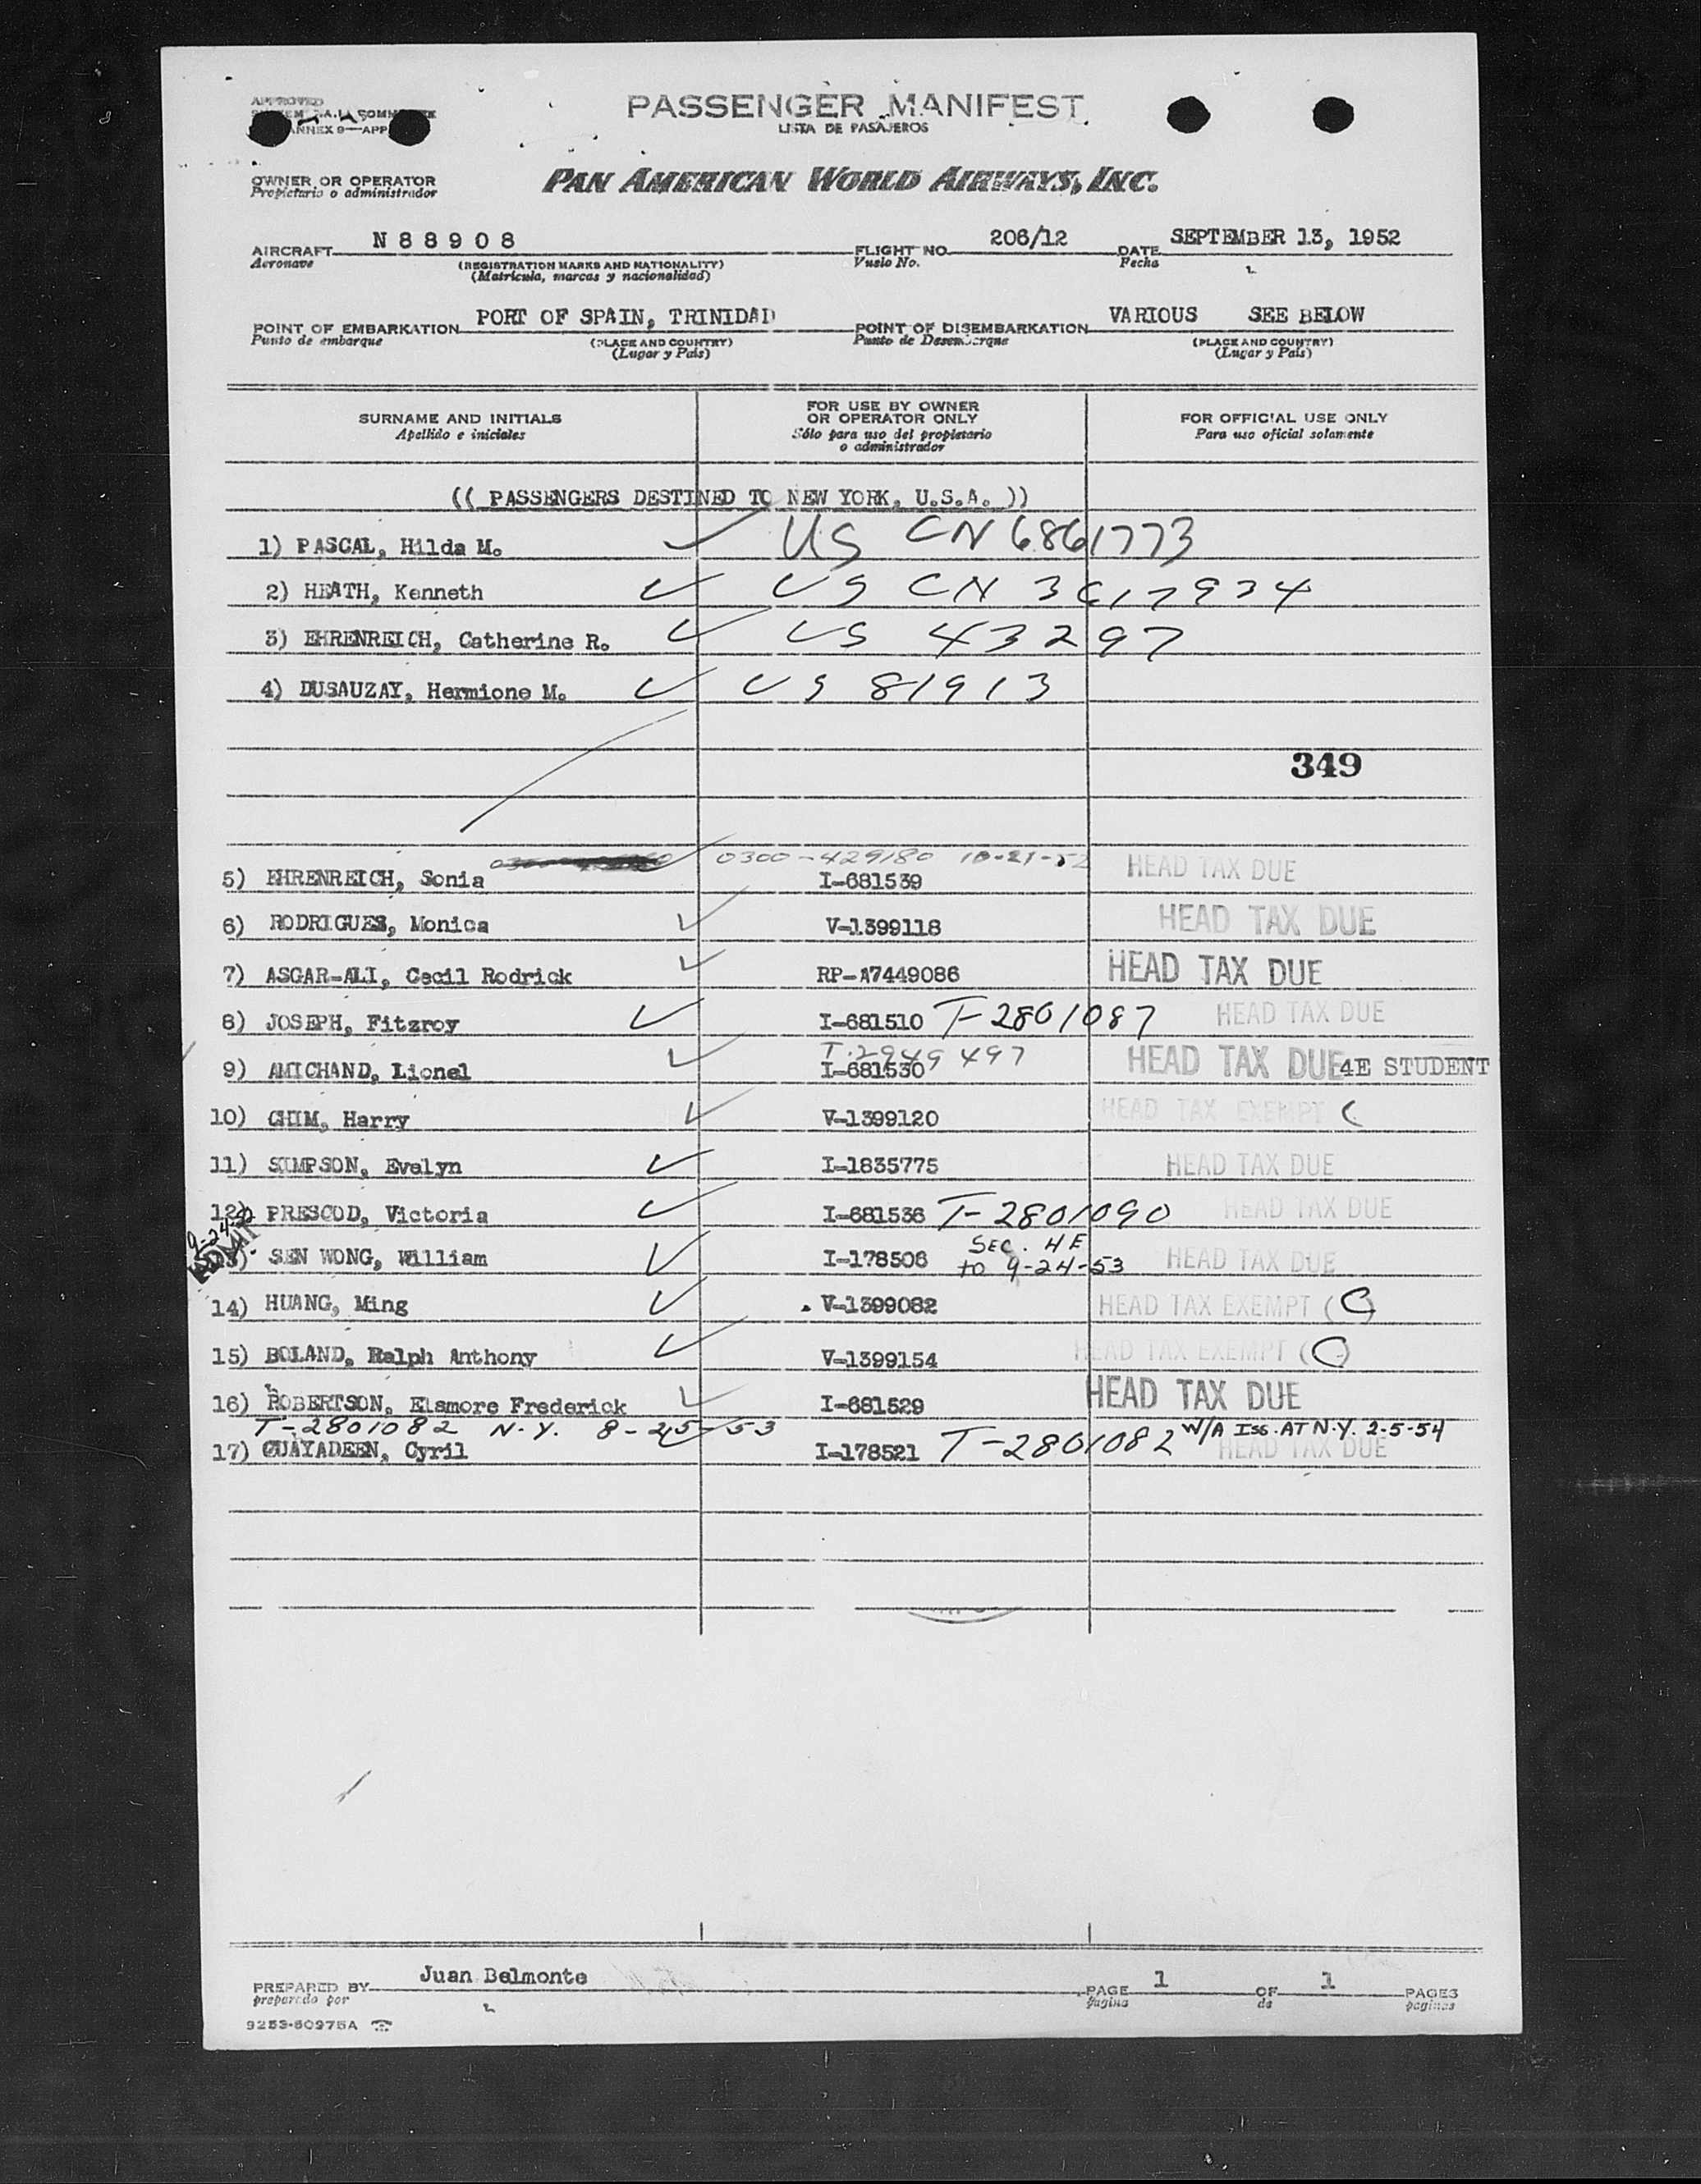 APPROVED
ANNEX 9—APP
PASSENGER MANIFEST
LISTA DE PASAJEROS
OWNER OR OPERATOR
Propietario o administrador
PAN AMERICAN WORLD AIRWAYS, INC.
AIRCRAFT N 8 8 9 0 8 FLIGHT NO. 206/12 DATE SEPTEMBER 13, 1952
Aeronave (REGISTRATION MARKS AND NATIONALITY) Vuelo No. Fecha
(Matrícula, marcas y nacionalidad)
POINT OF EMBARKATION PORT OF SPAIN, TRINIDAD POINT OF DISEMBARKATION VARIOUS SEE BELOW
Punto de embarque (PLACE AND COUNTRY) Punto de Desembarque (PLACE AND COUNTRY)
(Lugar y País) (Lugar y País)
SURNAME AND INITIALS FOR USE BY OWNER OR OPERATOR ONLY FOR OFFICIAL USE ONLY
Apellido e iniciales Sólo para uso del propietario o administrador Para uso oficial solamente
(( PASSENGERS DESTINED TO NEW YORK, U.S.A. ))
1) PASCAL, Hilda M. ✓ US CN 6861773
2) HEATH, Kenneth ✓ US CN 3617934
3) EHRENREICH, Catherine R. ✓ US 43297
4) DUSAUZAY, Hermione M. ✓ US 81913
349
0300-429180 10-21-52
5) EHRENREICH, Sonia I-681539 HEAD TAX DUE
6) RODRIGUES, Monica ✓ V-1399118 HEAD TAX DUE
7) ASGAR-ALI, Cecil Rodrick ✓ RP-A7449086 HEAD TAX DUE
8) JOSEPH, Fitzroy ✓ I-681510 T-2801087 HEAD TAX DUE
T-2949497
9) AMICHAND, Lionel ✓ I-681530 HEAD TAX DUE 4E STUDENT
10) CHIM, Harry ✓ V-1399120 HEAD TAX EXEMPT C
11) SIMPSON, Evelyn ✓ I-1835775 HEAD TAX DUE
12) PRESCOD, Victoria ✓ I-681536 T-2801090 HEAD TAX DUE
SEC. 4E
13) SEN WONG, William ✓ I-178506 to 9-24-53 HEAD TAX DUE
14) HUANG, Ming ✓ V-1399082 HEAD TAX EXEMPT (C)
15) BOLAND, Ralph Anthony ✓ V-1399154 HEAD TAX EXEMPT (C)
16) ROBERTSON, Elsmore Frederick ✓ I-681529 HEAD TAX DUE
T-2801082 N.Y. 8-25-53 W/A Iss. AT N.Y. 2-5-54
17) GUAYADEEN, Cyril I-178521 T-2801082 HEAD TAX DUE
PREPARED BY Juan Belmonte PAGE 1 OF 1 PAGES
preparado por página de páginas
9253-50975A